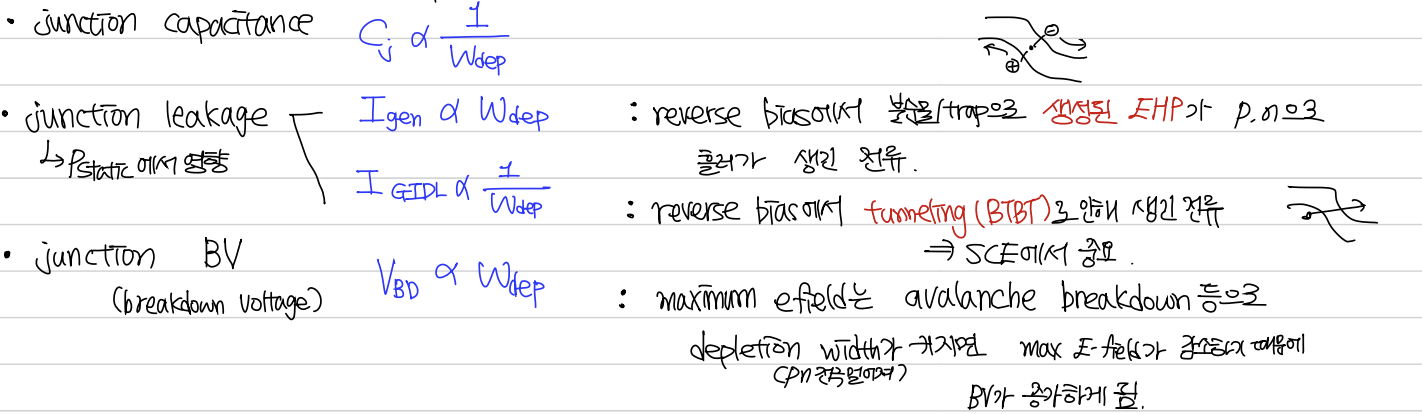 • junction capacitance Cj ∝ 1/Wdep
• junction leakage Igen ∝ Wdep : reverse bias에서 불순물/trap으로 생성된 EHP가 p.n으로
↳ Pstatic에서 영향 흘러가 생긴 전류.
IGIDL ∝ 1/Wdep : reverse bias에서 tunneling(BTBT)로 인해 생긴 전류
⇒ SCE에서 중요.
• junction BV VBD ∝ Wdep
(breakdown voltage) : maximum efield는 avalanche breakdown 등으로
depletion width가 커지면 max E-field가 감소하기 때문에
(pn 간격 멀어져)
BV가 증가하게 됨.
⊖
⊕